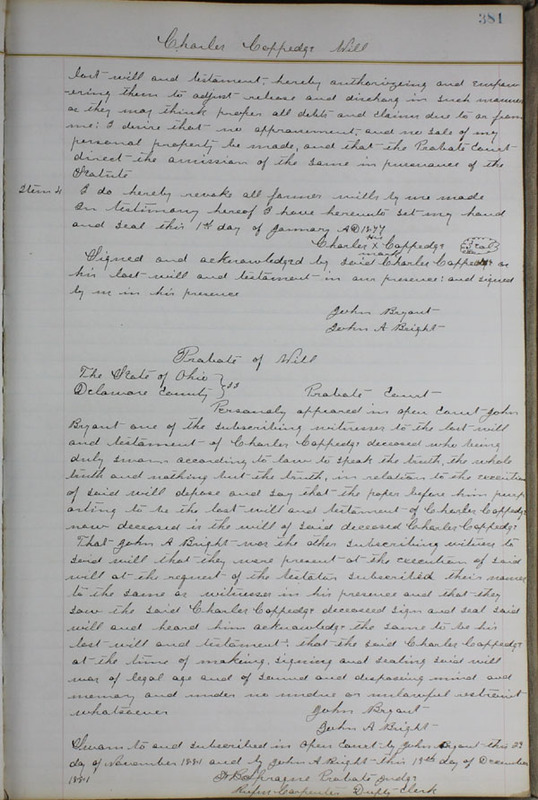 381
Charles Coppedge Will
last will and testament, hereby authorizeing and empow
ering them to adjust release and discharg in such manner
as they may think proper all debts and claims due to or from
me: I desire that no appraisement, and no sale of my
personal property be made, and that the Probate Court
direct the omission of the same in pursuance of the
Statute
Item 4 I do hereby revoke all former wills by me made
In testimony hereof I have hereunto set my hand
and seal this 1st day of January AD 1877
his
Charles X Coppedge Seal
mark
Signed and acknowledged by said Charles Coppedge as
his last will and testament in our presence: and signed
by us in his presence
John Bryant
John A Bright
Probate of Will
The State of Ohio
Delaware County } SS Probate Court
Personaly appeared in open Court John
Bryant one of the subscribing witnesses to the last will
and testament of Charles Coppedge deceased who being
duly sworn according to law to speak the truth, the whole
truth and nothing but the truth, in relation to the execution
of said will depose and say that the paper before him purp
orting to be the last will and testament of Charles Coppedge
now deceased is the will of said deceased Charles Coppedge
That John A Bright was the other subscribing witness to
said will that they were present at the execution of said
will at the request of the testator subscribed their names
to the same as witnesses in his presence and that they
saw the said Charles Coppedge deceased sign and seal said
will and heard him acknowledge the same to be his
last will and testament: that the said Charles Coppedge
at the time of making, signing and sealing said will
was of legal age and of sound and disposing mind and
memory and under no undue or unlawful restraint
whatsoever John Bryant
John A Bright
Sworn to and subscribed in open Court by John Bryant this 29
day of November 1881 and by John A Bright this 19th day of December
1881 Sprague Probate Judge
Rufus Carpenter Deputy Clerk